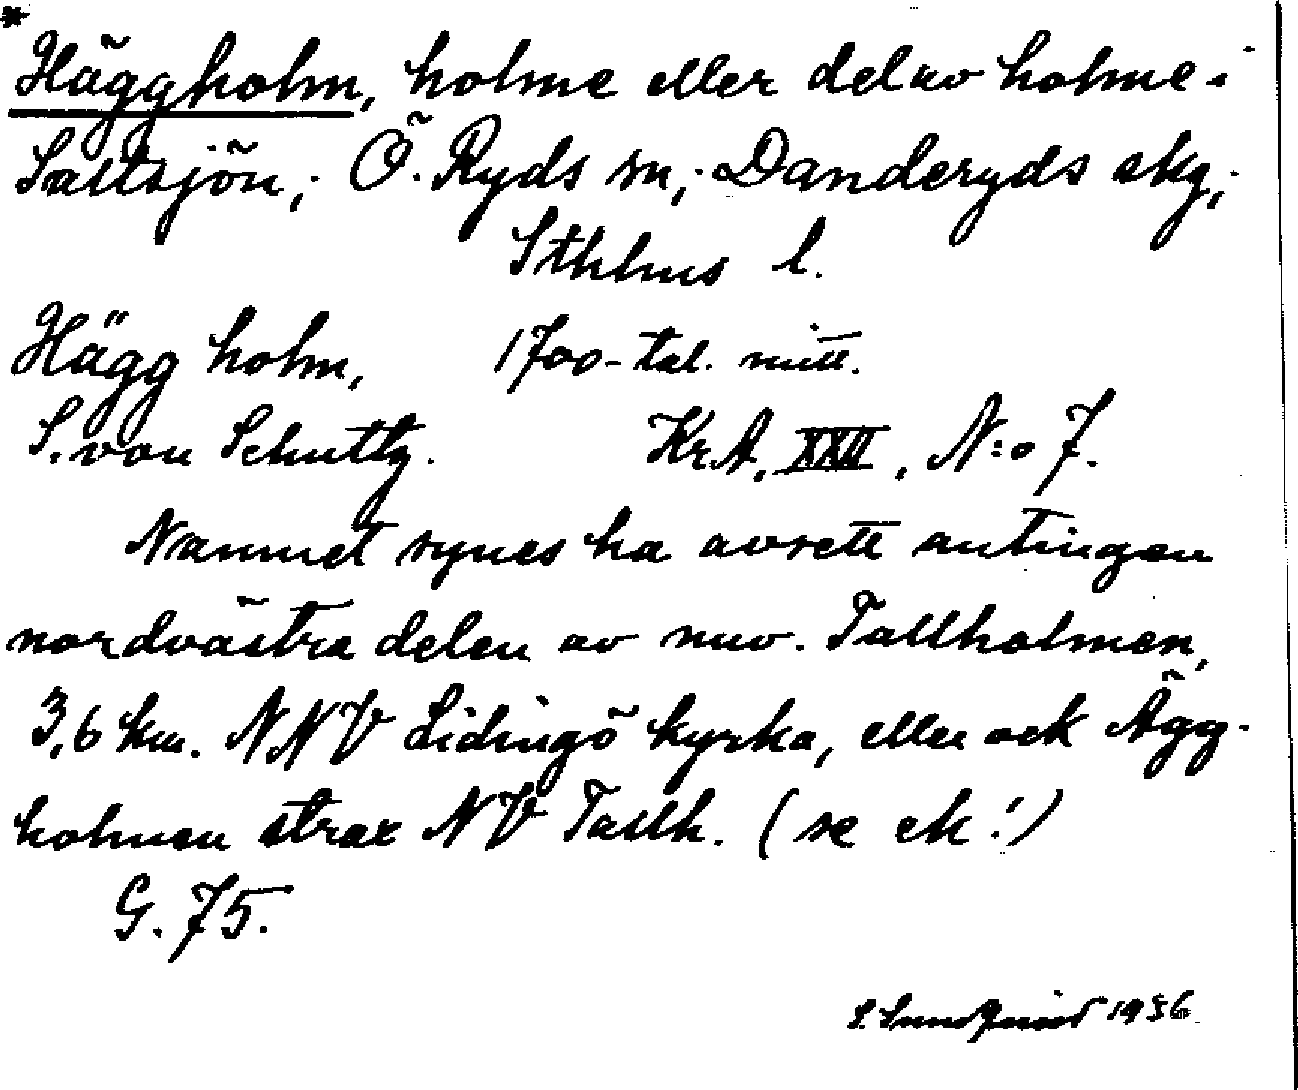 *
Häggholm, holme eller del av holme i
Saltsjön, Ö. Ryds sn, Danderyds skg,
Sthlms l.
Hägg holm, 1700-tal. mitt.
S. von Schultz. KrA, XXII, N:o 7.
Namnet synes ha avsett antingen
nordvästra delen av nuv. Tallholmen,
3,6 km. NNV Lidingö kyrka, eller ock Ägg-
holmen strax NV Tallh. (se ek!)
G. 75.
S. Sundqvist 1936